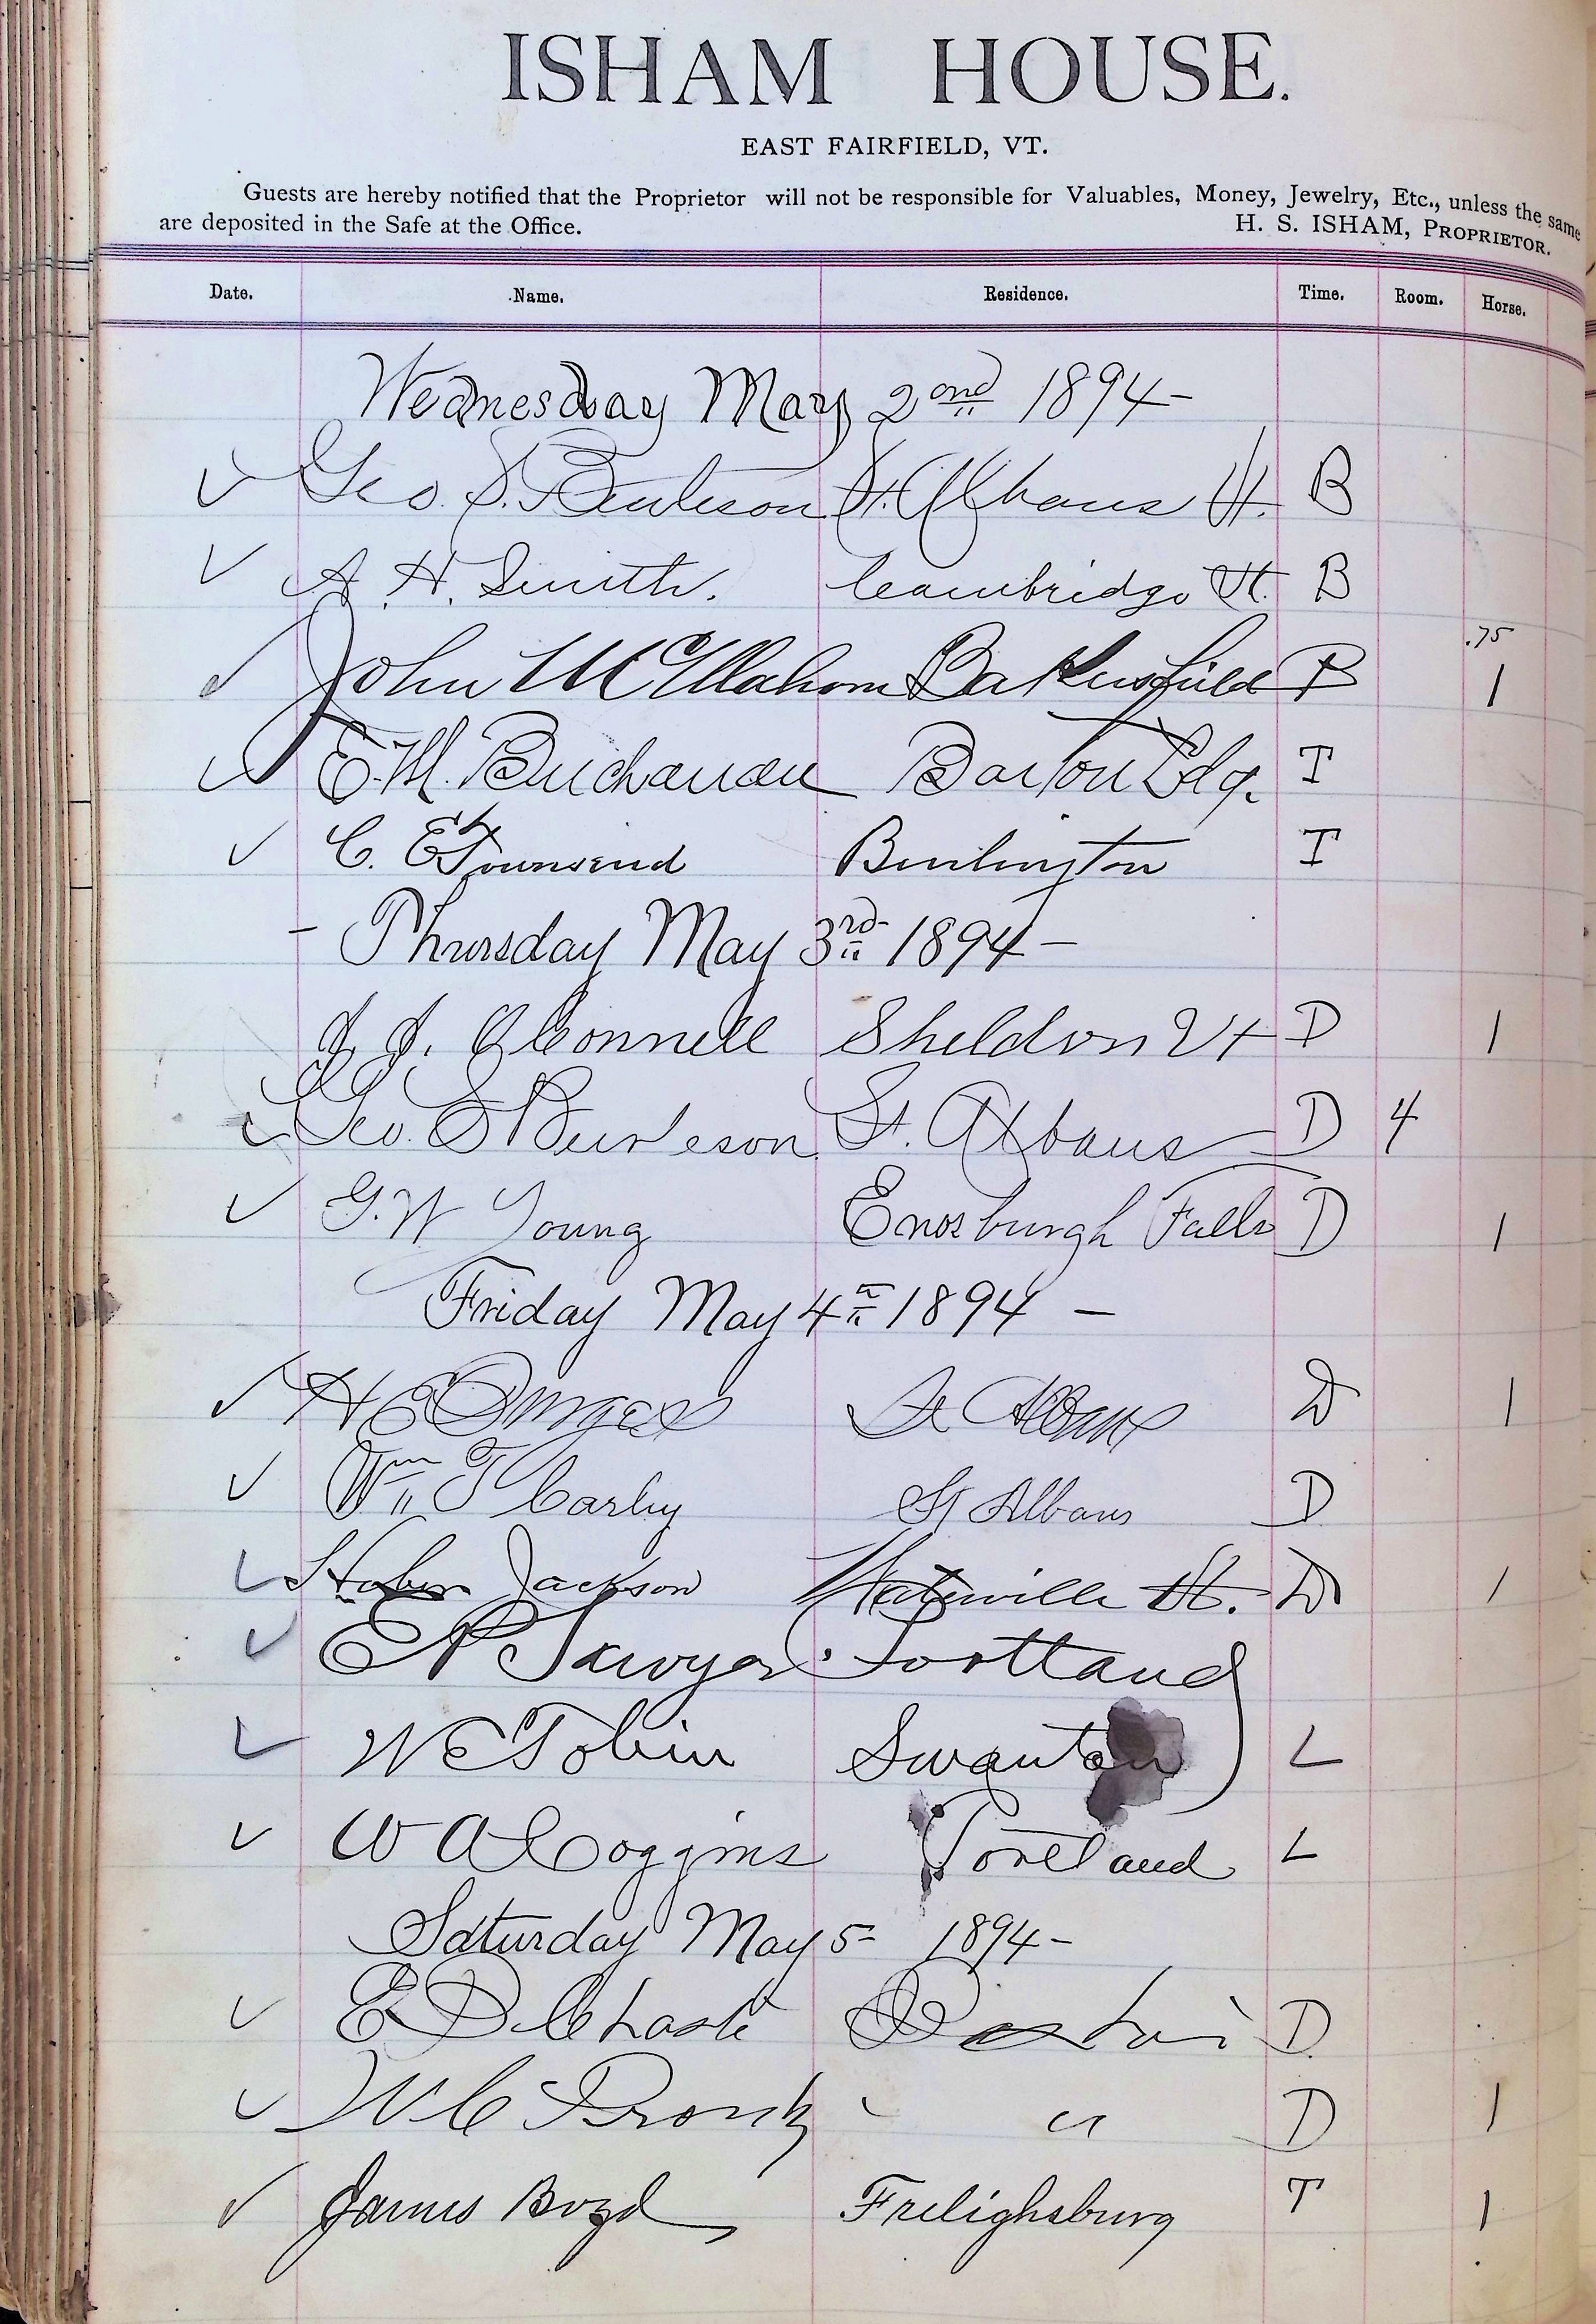 ISHAM HOUSE.
EAST FAIRFIELD, VT.
Guests are hereby notified that the Proprietor will not be responsible for Valuables, Money, Jewelry, Etc., unless the same
are deposited in the Safe at the Office. H. S. ISHAM, PROPRIETOR.
Date. Name. Residence. Time. Room. Horse.
Wednesday May 2nd 1894-
✓ Geo. S. Burleson St. Albans Vt. B
✓ A. H. Smith. Cambridge Vt. B
.75
✓ John McMahon Bakersfield B 1
✓ E. M. Buchanan Barton Ldg. T
✓ C. E. Townsend Burlington T
- Thursday May 3rd 1894-
J. J. O'Connell Sheldon Vt D 1
✓ Geo. S Burleson. St. Albans D 4
✓ G. W Young Enosburgh Falls D 1
Friday May 4th 1894 -
✓ H E St Albans D 1
✓ Wm T Carley St Albans D
✓ Jackson Waterville Vt. D 1
✓ E P Sawyer Portland
✓ W E Tobin Swanton L
✓ W A Coggins Portland L
Saturday May 5- 1894-
✓ E D Chase Boston D
✓ W C Bronk " D 1
✓ James Boyd Frelighsburg T 1